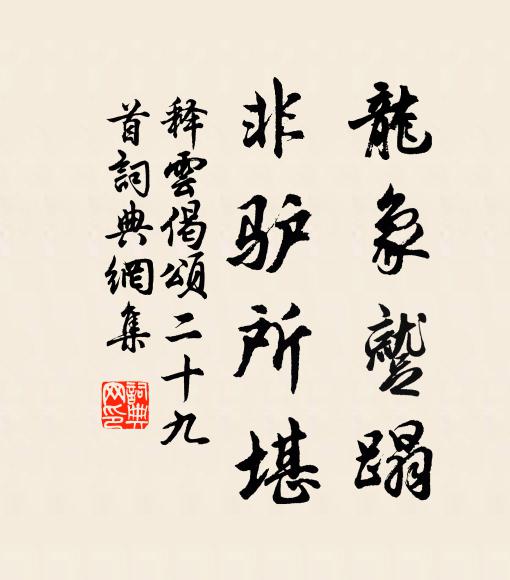 龍象蹵蹋
非驴所堪
释雲偈頌二十九
首詞典網集
詞典
网印